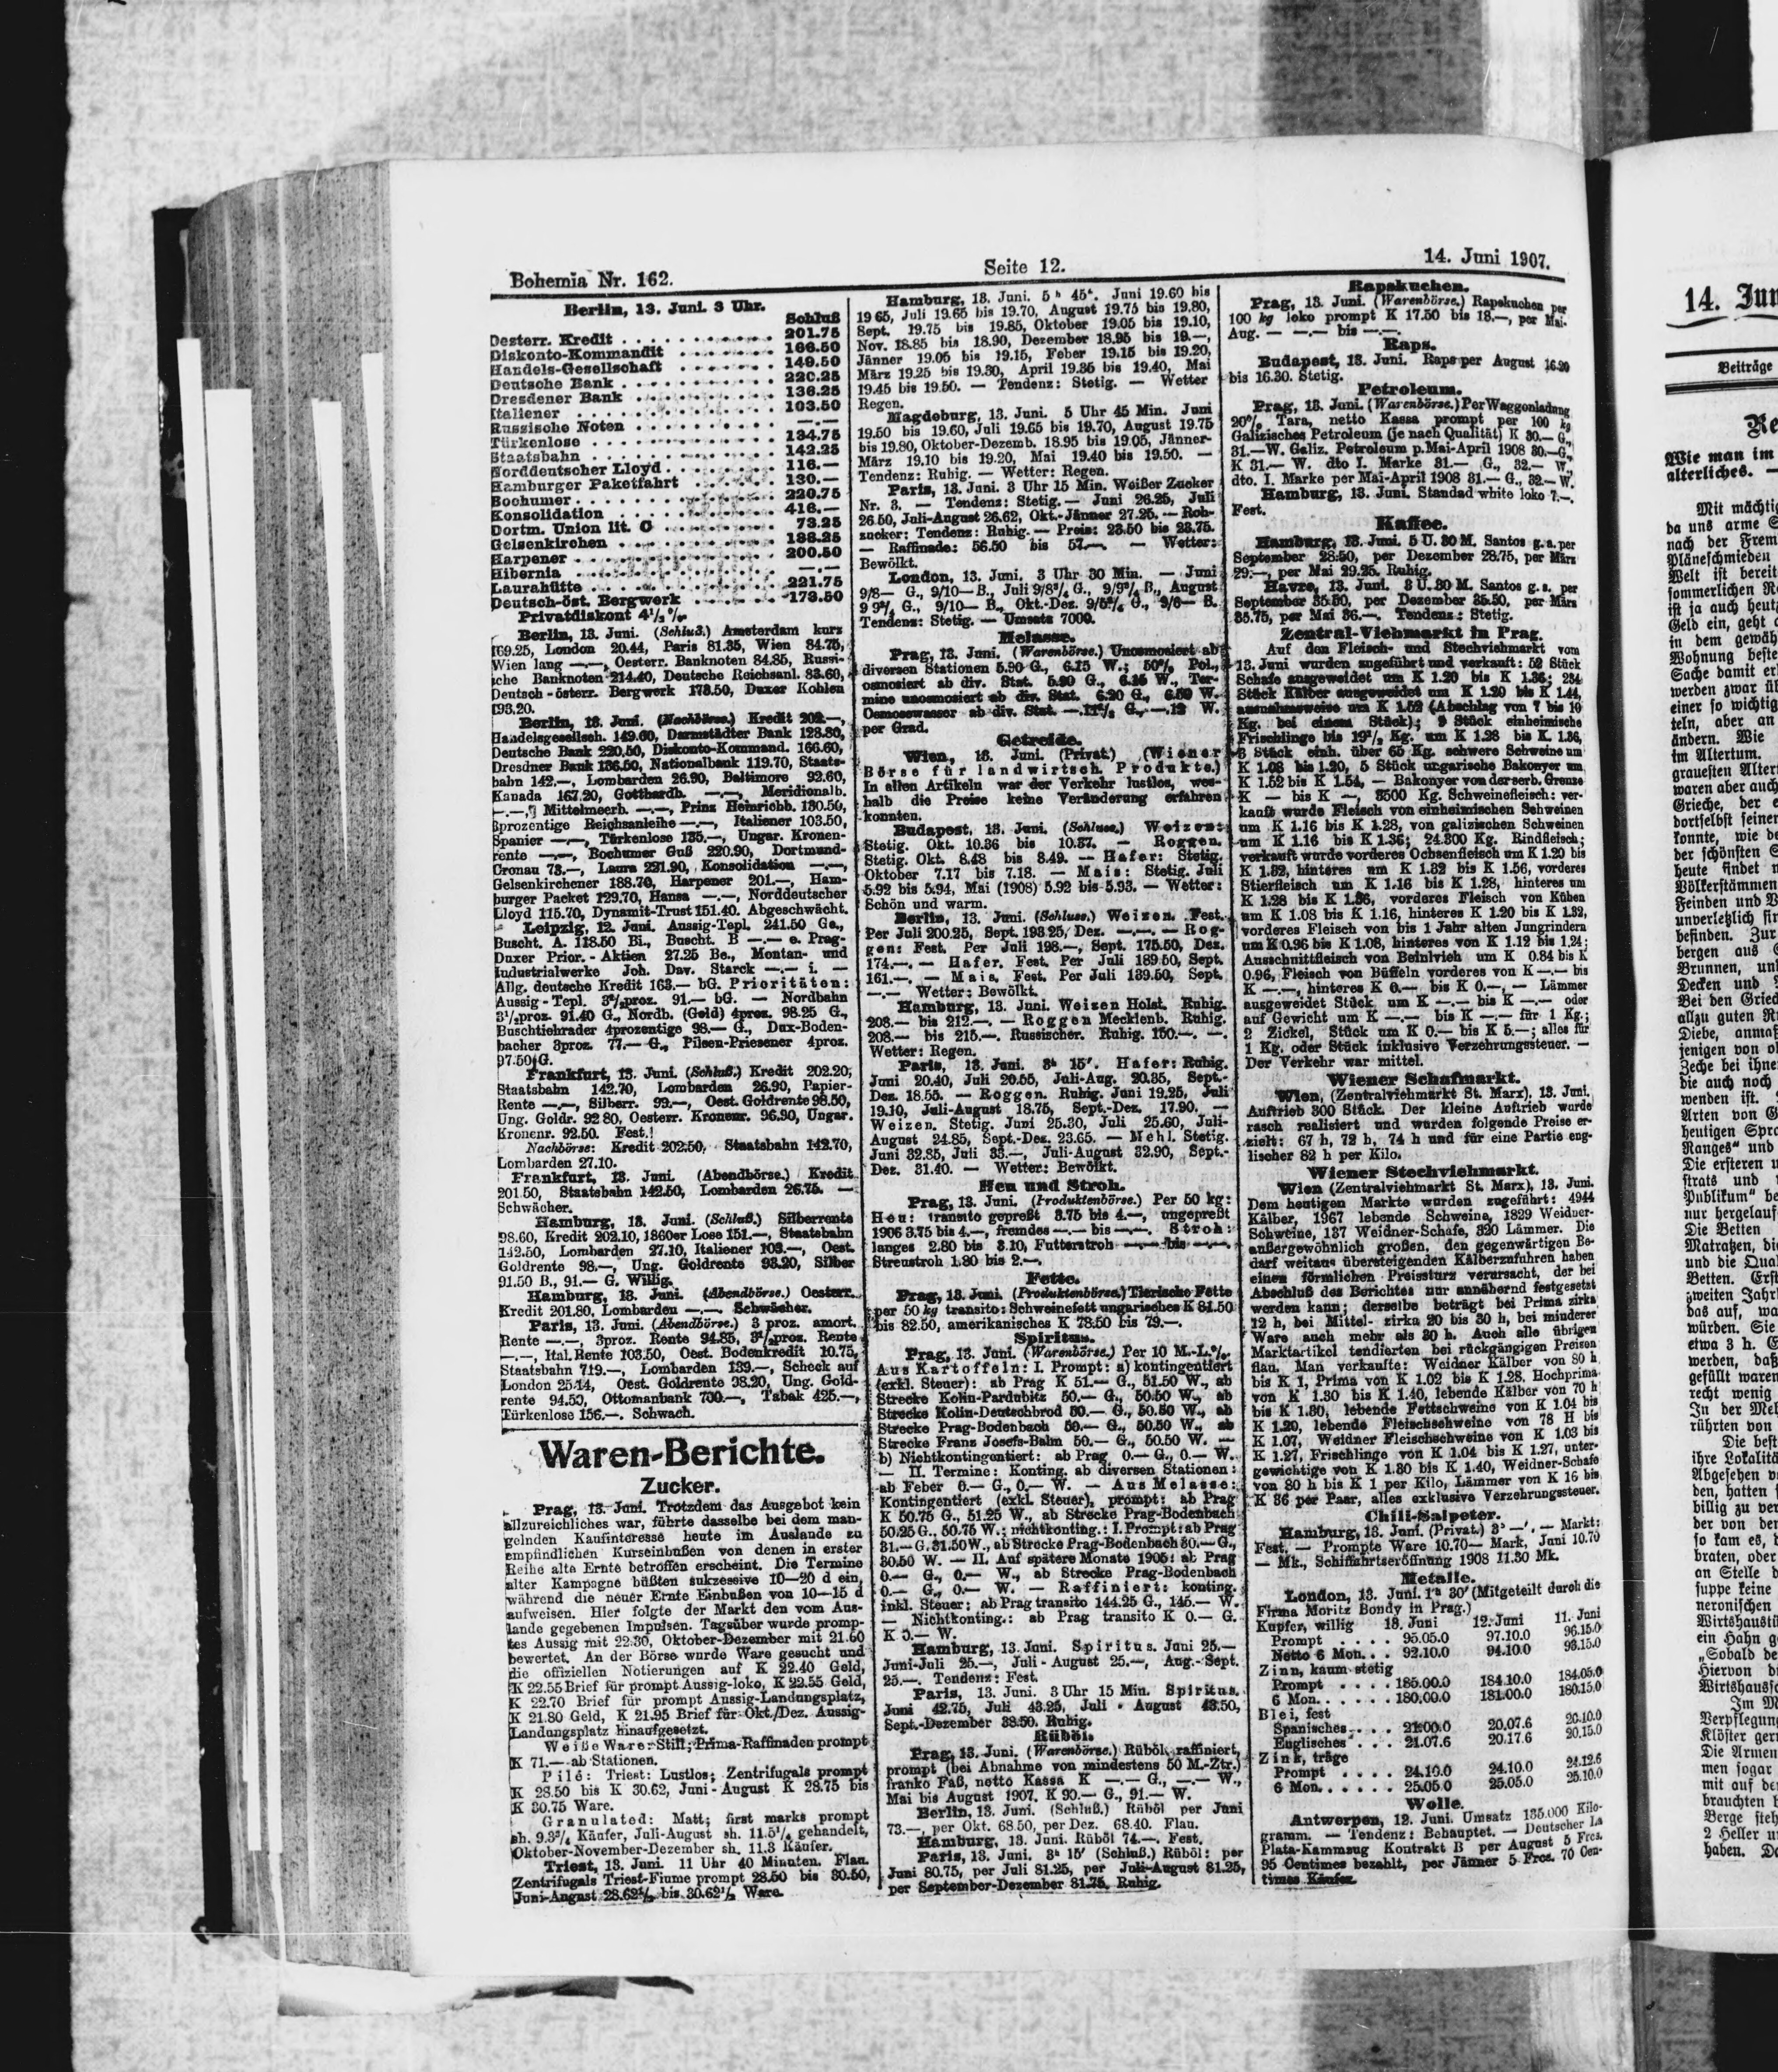 Bohemia Nr. 162.
Seite 12.
14. Juni 1907.
Berlin, 13. Juni. 3 Uhr.
Schluß
Oesterr. Kredit . . . 201.75
Diskonto-Kommandit . . . 166.50
Handels-Gesellschaft . . . 149.50
Deutsche Bank . . . 220.25
Dresdener Bank . . . 136.25
Italiener . . . 103.50
Russische Noten . . . —.—
Türkenlose . . . 134.75
Staatsbahn . . . 142.25
Norddeutscher Lloyd . . . 116.—
Hamburger Paketfahrt . . . 130.—
Bochumer . . . 220.75
Konsolidation . . . 416.—
Dortm. Union lit. C . . . 73.25
Gelsenkirchen . . . 188.25
Harpener . . . 200.50
Hibernia . . . —.—
Laurahütte . . . 221.75
Deutsch-öst. Bergwerk . . . 173.50
Privatdiskont 4½ %
Berlin, 13. Juni. (Schluß.) Amsterdam kurz
169.25, London 20.44, Paris 81.35, Wien 84.75,
Wien lang —.—, Oesterr. Banknoten 84.85, Russi-
sche Banknoten 214.40, Deutsche Reichsanl. 83.60,
Deutsch-österr. Bergwerk 173.50, Duxer Kohlen
193.20.
Berlin, 13. Juni. (Nachbörse.) Kredit 202.—,
Handelsgesellsch. 149.60, Darmstädter Bank 128.80,
Deutsche Bank 220.50, Diskonto-Kommand. 166.60,
Dresdner Bank 136.50, Nationalbank 119.70, Staats-
bahn 142.—, Lombarden 26.90, Baltimore 92.60,
Kanada 167.20, Gotthardb. —.—, Meridionalb.
—.—, Mittelmeerb. —.—, Prinz Heinrichb. 130.50,
3prozentige Reichsanleihe —.—, Italiener 103.50,
Spanier —.—, Türkenlose 135.—, Ungar. Kronen-
rente —.—, Bochumer Guß 220.90, Dortmund-
Gronau 73.—, Laura 221.90, Konsolidation —.—,
Gelsenkirchener 188.70, Harpener 201.—, Ham-
burger Packet 129.70, Hansa —.—, Norddeutscher
Lloyd 115.70, Dynamit-Trust 151.40. Abgeschwächt.
Leipzig, 12. Juni. Aussig-Tepl. 241.50 Ge.,
Buscht. A. 118.50 Bi., Buscht. B —.— e. Prag-
Duxer Prior.-Aktien 27.25 Be., Montan- und
Industrialwerke Joh. Dav. Starck —.— i. —
Allg. deutsche Kredit 163.— bG. Prioritäten:
Aussig-Tepl. 3½proz. 91.— bG. — Nordbahn
3½proz. 91.40 G., Nordb. (Gold) 4proz. 98.25 G.,
Buschtiehrader 4prozentige 98.— G., Dux-Boden-
bacher 3proz. 77.— G., Pilsen-Priesener 4proz.
97.50 G.
Frankfurt, 13. Juni. (Schluß.) Kredit 202.20,
Staatsbahn 142.70, Lombarden 26.90, Papier-
Rente —.—, Silberr. 99.—, Oest. Goldrente 98.50,
Ung. Goldr. 92 80, Oesterr. Kronenr. 96.90, Ungar.
Kronenr. 92.50. Fest.
Nachbörse: Kredit 202.50, Staatsbahn 142.70,
Lombarden 27.10.
Frankfurt, 13. Juni. (Abendbörse.) Kredit
201.50, Staatsbahn 142.50, Lombarden 26.75. —
Schwächer.
Hamburg, 13. Juni. (Schluß.) Silberrente
98.60, Kredit 202.10, 1860er Lose 151.—, Staatsbahn
142.50, Lombarden 27.10, Italiener 103.—, Oest.
Goldrente 98.—, Ung. Goldrente 93.20, Silber
91.50 B., 91.— G. Willig.
Hamburg, 13. Juni. (Abendbörse.) Oesterr.
Kredit 201.80, Lombarden —.—. Schwächer.
Paris, 13. Juni. (Abendbörse.) 3 proz. amort.
Rente —.—, 3proz. Rente 94.85, 3½proz. Rente
—.—, Ital. Rente 103.50, Oest. Bodenkredit 10.75,
Staatsbahn 719.—, Lombarden 139.—, Scheck auf
London 25.14, Oest. Goldrente 98.20, Ung. Gold-
rente 94.50, Ottomanbank 700.—, Tabak 425.—,
Türkenlose 156.—. Schwach.
Waren-Berichte.
Zucker.
Prag, 13. Juni. Trotzdem das Ausgebot kein
allzureichliches war, führte dasselbe bei dem man-
gelnden Kaufinteresse heute im Auslande zu
empfindlichen Kurseinbußen von denen in erster
Reihe alte Ernte betroffen erscheint. Die Termine
alter Kampagne büßten sukzessive 10—20 d ein,
während die neuer Ernte Einbußen von 10—15 d
aufweisen. Hier folgte der Markt den vom Aus-
lande gegebenen Impulsen. Tagsüber wurde promp-
tes Aussig mit 22.30, Oktober-Dezember mit 21.60
bewertet. An der Börse wurde Ware gesucht und
die offiziellen Notierungen auf K 22.40 Geld,
K 22.55 Brief für prompt Aussig-loko, K 22.55 Geld,
K 22.70 Brief für prompt Aussig-Landungsplatz,
K 21.80 Geld, K 21.95 Brief für Okt./Dez. Aussig-
Landungsplatz hinaufgesetzt.
Weiße Ware: Still; Prima-Raffinaden prompt
K 71.— ab Stationen.
Pilé: Triest: Lustlos; Zentrifugals prompt
K 28.50 bis K 30.62, Juni-August K 28.75 bis
K 30.75 Ware.
Granulated: Matt; first marks prompt
sh. 9.3¾ Käufer, Juli-August sh. 11.5¼ gehandelt,
Oktober-November-Dezember sh. 11.3 Käufer.
Triest, 13. Juni. 11 Uhr 40 Minuten. Flau.
Zentrifugals Triest-Fiume prompt 28.50 bis 30.50,
Juni-August 28.62½ bis 30.62½ Ware.
Hamburg, 13. Juni. 5 h 45'. Juni 19.60 bis
19 65, Juli 19.65 bis 19.70, August 19.75 bis 19.80,
Sept. 19.75 bis 19.85, Oktober 19.05 bis 19.10,
Nov. 18.85 bis 18.90, Dezember 18.95 bis 19.—,
Jänner 19.05 bis 19.15, Feber 19.15 bis 19.20,
März 19.25 bis 19.30, April 19.35 bis 19.40, Mai
19.45 bis 19.50. — Tendenz: Stetig. — Wetter
Regen.
Magdeburg, 13. Juni. 5 Uhr 45 Min. Juni
19.50 bis 19.60, Juli 19.65 bis 19.70, August 19.75
bis 19.80, Oktober-Dezemb. 18.95 bis 19.05, Jänner-
März 19.10 bis 19.20, Mai 19.40 bis 19.50. —
Tendenz: Ruhig. — Wetter: Regen.
Paris, 13. Juni. 3 Uhr 15 Min. Weißer Zucker
Nr. 3. — Tendenz: Stetig. — Juni 26.25, Juli
26.50, Juli-August 26.62, Okt.-Jänner 27.25. — Roh-
zucker: Tendenz: Ruhig. — Preis: 23.50 bis 23.75.
— Raffinade: 56.50 bis 57.—. — Wetter:
Bewölkt.
London, 13. Juni. 3 Uhr 30 Min. — Juni
9/8— G., 9/10— B., Juli 9/8¾ G., 9/9¾ B., August
9 9¾ G., 9/10— B., Okt.-Dez. 9/5¾ G., 9/6— B.
Tendenz: Stetig. — Umsatz 7000.
Melasse.
Prag, 13. Juni. (Warenbörse.) Unosmosiert ab
diversen Stationen 5.90 G., 6.15 W.; 50% Pol.,
osmosiert ab div. Stat. 5.90 G., 6.15 W., Ter-
mine unosmosiert ab div. Stat. 6.20 G., 6.50 W.
Osmosewasser ab div. Stat. —.11½ G., —.12 W.
per Grad.
Getreide.
Wien, 13. Juni. (Privat.) (Wiener
Börse für landwirtsch. Produkte.)
In allen Artikeln war der Verkehr lustlos, wes-
halb die Preise keine Veränderung erfahren
konnten.
Budapest, 13. Juni. (Schluss.) Weizen:
Stetig. Okt. 10.36 bis 10.37. — Roggen.
Stetig. Okt. 8.48 bis 8.49. — Hafer: Stetig.
Oktober 7.17 bis 7.18. — Mais: Stetig. Juli
5.92 bis 5.94, Mai (1908) 5.92 bis 5.93. — Wetter:
Schön und warm.
Berlin, 13. Juni. (Schluss.) Weizen. Fest.
Per Juli 200.25, Sept. 193.25, Dez. —.—. — Rog-
gen: Fest. Per Juli 198.—, Sept. 175.50, Dez.
174.—. — Hafer. Fest. Per Juli 189 50, Sept.
161.—. — Mais. Fest. Per Juli 139.50, Sept.
—.— Wetter: Bewölkt.
Hamburg, 13. Juni. Weizen Holst. Ruhig.
208.— bis 212.—. — Roggen Mecklenb. Ruhig.
208.— bis 215.—. Russischer. Ruhig. 150.—. —.
Wetter: Regen.
Paris, 13. Juni. 3h 15'. Hafer: Ruhig.
Juni 20.40, Juli 20.55, Juli-Aug. 20.35, Sept.-
Dez. 18.55. — Roggen. Ruhig. Juni 19.25, Juli
19.10, Juli-August 18.75, Sept.-Dez. 17.90. —
Weizen. Stetig. Juni 25.30, Juli 25.60, Juli-
August 24.85, Sept.-Dez. 23.65. — Mehl. Stetig.
Juni 32.85, Juli 33.—, Juli-August 32.90, Sept.-
Dez. 31.40. — Wetter: Bewölkt.
Heu und Stroh.
Prag, 13. Juni. (Produktenbörse.) Per 50 kg:
Heu: transito gepreßt 3.75 bis 4.—, ungepreßt
1906 3.75 bis 4.—, fremdes —.— bis —.—. Stroh:
langes 2.80 bis 3.10, Futterstroh —.— bis —.—,
Streustroh 1.80 bis 2.—.
Fette.
Prag, 13. Juni. (Produktenbörse.) Tierische Fette
per 50 kg transito: Schweinefett ungarisches K 81.50
bis 82.50, amerikanisches K 78.50 bis 79.—.
Spiritus.
Prag, 13. Juni. (Warenbörse.) Per 10 M.-L.%.
Aus Kartoffeln: I. Prompt: a) kontingentiert
(exkl. Steuer): ab Prag K 51.— G., 51.50 W., ab
Strecke Kolin-Pardubitz 50.— G., 50.50 W., ab
Strecke Kolin-Deutschbrod 50.— G., 50.50 W., ab
Strecke Prag-Bodenbach 50.— G., 50.50 W., ab
Strecke Franz Josefs-Bahn 50.— G., 50.50 W. —
b) Nichtkontingentiert: ab Prag 0.— G., 0.— W.
— II. Termine: Konting. ab diversen Stationen:
ab Feber 0.— G., 0.— W. — Aus Melasse:
Kontingentiert (exkl. Steuer), prompt: ab Prag
K 50.75 G., 51.25 W., ab Strecke Prag-Bodenbach
50.25 G., 50.75 W.; nichtkonting.: I. Prompt: ab Prag
31.— G. 31.50 W., ab Strecke Prag-Bodenbach 30.— G.,
30.50 W. — II. Auf spätere Monate 1905: ab Prag
0.— G., 0.— W., ab Strecke Prag-Bodenbach
0.— G., 0.— W. — Raffiniert: konting.
inkl. Steuer: ab Prag transito 144.25 G., 145.— W.
— Nichtkonting.: ab Prag transito K 0.— G.
K 0.— W.
Hamburg, 13. Juni. Spiritus. Juni 25.—
Juni-Juli 25.—, Juli-August 25.—, Aug.-Sept.
25.—. Tendenz: Fest.
Paris, 13. Juni. 3 Uhr 15 Min. Spiritus.
Juni 42.75, Juli 43.25, Juli-August 43.50,
Sept.-Dezember 38.50. Ruhig.
Rüböl.
Prag, 13. Juni. (Warenbörse.) Rüböl, raffiniert,
prompt (bei Abnahme von mindestens 50 M.-Ztr.)
franko Faß, netto Kassa K —.— G., —.— W.,
Mai bis August 1907, K 90.— G., 91.— W.
Berlin, 13. Juni. (Schluß.) Rüböl per Juni
73.—, per Okt. 68.50, per Dez. 68.40. Flau.
Hamburg, 13. Juni. Rüböl 74.—. Fest.
Paris, 13. Juni. 3h 15' (Schluß.) Rüböl: per
Juni 80.75, per Juli 81.25, per Juli-August 81.25,
per September-Dezember 81.75. Ruhig.
Rapskuchen.
Prag, 13. Juni. (Warenbörse.) Rapskuchen per
100 kg loko prompt K 17.50 bis 18.—, per Mai-
Aug. — —.— bis —.—.
Raps.
Budapest, 13. Juni. Raps per August 16.20
bis 16.30. Stetig.
Petroleum.
Prag, 13. Juni. (Warenbörse.) Per Waggonladung
20% Tara, netto Kassa prompt per 100 kg
Galizisches Petroleum (je nach Qualität) K 30.— G.,
31.— W. Galiz. Petroleum p. Mai-April 1908 30.— G.,
K 31.— W. dto I. Marke 31.— G., 32.— W.,
dto. I. Marke per Mai-April 1908 31.— G., 32.— W.
Hamburg, 13. Juni. Standad white loko 7.—.
Fest.
Kaffee.
Hamburg, 13. Juni. 5 U. 30 M. Santos g. a. per
September 28.50, per Dezember 28.75, per März
29.—, per Mai 29.25. Ruhig.
Havre, 13. Juni. 3 U. 30 M. Santos g. a. per
September 35.50, per Dezember 35.50, per März
35.75, per Mai 36.—. Tendenz: Stetig.
Zentral-Viehmarkt in Prag.
Auf den Fleisch- und Stechviehmarkt vom
13. Juni wurden zugeführt und verkauft: 52 Stück
Schafe ausgeweidet um K 1.20 bis K 1.36; 234
Stück Kälber ausgeweidet um K 1.20 bis K 1.44,
ausnahmsweise um K 1.52 (Abschlag von 7 bis 10
Kg. bei einem Stück); 9 Stück einheimische
Frischlinge bis 19½ Kg. um K 1.28 bis K 1.36,
8 Stück einh. über 65 Kg. schwere Schweine um
K 1.08 bis 1.20, 5 Stück ungarische Bakonyer um
K 1.52 bis K 1.54, — Bakonyer von der serb. Grenze
K — bis K —, 3500 Kg. Schweinefleisch: ver-
kauft wurde Fleisch von einheimischen Schweinen
um K 1.16 bis K 1.28, von galizischen Schweinen
um K 1.16 bis K 1.36; 24.300 Kg. Rindfleisch;
verkauft wurde vorderes Ochsenfleisch um K 1.20 bis
K 1.32, hinteres um K 1.32 bis K 1.56, vorderes
Stierfleisch um K 1.16 bis K 1.28, hinteres um
K 1.28 bis K 1.36, vorderes Fleisch von Kühen
um K 1.08 bis K 1.16, hinteres K 1.20 bis K 1.32,
vorderes Fleisch von bis 1 Jahr alten Jungrindern
um K 0.96 bis K 1.08, hinteres von K 1.12 bis 1.24;
Ausschnittfleisch von Beinlvieh um K 0.84 bis K
0.96, Fleisch von Büffeln vorderes von K —.— bis
K —.—, hinteres K 0.— bis K 0.—, — Lämmer
ausgeweidet Stück um K —.— bis K —.— oder
auf Gewicht um K —.— bis K —.— für 1 Kg.;
2 Zickel, Stück um K 0.— bis K 5.—; alles für
1 Kg. oder Stück inklusive Verzehrungssteuer. —
Der Verkehr war mittel.
Wiener Schafmarkt.
Wien, (Zentralviehmarkt St. Marx), 13. Juni.
Auftrieb 300 Stück. Der kleine Auftrieb wurde
rasch realisiert und wurden folgende Preise er-
zielt: 67 h, 72 h, 74 h und für eine Partie eng-
lischer 82 h per Kilo.
Wiener Stechviehmarkt.
Wien (Zentralviehmarkt St. Marx), 13. Juni.
Dem heutigen Markte wurden zugeführt: 4944
Kälber, 1967 lebende Schweine, 1829 Weidner-
Schweine, 137 Weidner-Schafe, 320 Lämmer. Die
außergewöhnlich großen, den gegenwärtigen Be-
darf weitaus übersteigenden Kälberzufuhren haben
einen förmlichen Preissturz verursacht, der bei
Abschluß des Berichtes nur annähernd festgesetzt
werden kann; derselbe beträgt bei Prima zirka
12 h, bei Mittel- zirka 20 bis 30 h, bei minderer
Ware auch mehr als 30 h. Auch alle übrigen
Marktartikel tendierten bei rückgängigen Preisen
flau. Man verkaufte: Weidner Kälber von 80 h
bis K 1, Prima von K 1.02 bis K 1.28, Hochprima
von K 1.30 bis K 1.40, lebende Kälber von 70 h
bis K 1.30, lebende Fettschweine von K 1.04 bis
K 1.20, lebende Fleischschweine von 78 H bis
K 1.07, Weidner Fleischschweine von K 1.03 bis
K 1.27, Frischlinge von K 1.04 bis K 1.27, unter-
gewichtige von K 1.30 bis K 1.40, Weidner-Schafe
von 80 h bis K 1 per Kilo, Lämmer von K 16 bis
K 36 per Paar, alles exklusive Verzehrungssteuer.
Chili-Salpeter.
Hamburg, 13. Juni. (Privat.) 3h —'. — Markt:
Fest. — Prompte Ware 10.70— Mark, Juni 10.70
— Mk., Schiffahrtseröffnung 1908 11.30 Mk.
Metalle.
London, 13. Juni. 1h 30' (Mitgeteilt durch die
Firma Moritz Bondy in Prag.)
Kupfer, willig 13. Juni 12. Juni 11. Juni
Prompt . . . . 95.05.0 97.10.0 96.15.0
Netto 6 Mon. . . 92.10.0 94.10.0 93.15.0
Zinn, kaum stetig
Prompt . . . . 185.00.0 184.10.0 184.05.0
6 Mon. . . . . . 180.00.0 181.00.0 180.15.0
Blei, fest
Spanisches . . . 21.00.0 20.07.6 20.10.0
Englisches . . . 21.07.6 20.17.6 20.15.0
Zink, träge
Prompt . . . . 24.10.0 24.10.0 24.12.6
6 Mon. . . . . . 25.05 0 25.05.0 25.10.0
Wolle.
Antwerpen, 12. Juni. Umsatz 135.000 Kilo-
gramm. — Tendenz: Behauptet. — Deutscher La
Plata-Kammzug Kontrakt B per August 5 Frcs.
95 Centimes bezahlt, per Jänner 5 Frcs. 70 Cen-
times Käufer.
14. Jun
Beiträge
Wie man im
alterliches. —
Mit mächtig
da uns arme
nach der Frem
Pläneschmieden
Welt ist bereit
sommerlichen
ist ja auch heut
Geld ein, geht
in dem gewäh
Wohnung beste
Sache damit er
werden zwar
einer so wichtig
teln, aber an
ändern. Wie
im Altertum.
grauesten Alter
waren aber auch
Grieche, der
dortselbst seiner
konnte, wie be
der schönsten
heute findet
Völkerstämmen
Feinden und
unverletzlich
befinden. Zur
bergen aus
Brunnen, un
Decken und
Bei den Grie
allzu guten
Diebe, anmaß
jenigen von
Zeche bei ihne
die auch noch
wenden ist.
Arten von
heutigen Spr
Ranges" und
Die ersteren
strats und
Publikum" be
nur hergelauf
Die Betten
Matratzen, di
und die Qual
Betten. Erst
zweiten Jahr
das auf, wa
würden. Sie
etwa 3 h.
werden, daß
gefüllt waren
recht wenig
In der Mel
rührten von
Die best
ihre Lokalitä
Abgesehen
den, hatten
billig zu ver
der von der
so kam es,
braten, oder
an Stelle
suppe keine
neronischen
Wirtshaustü
ein Hahn
„Sobald be
Hiervon
Wirtshaus
Im
Verpflegun
Klöster ger
Die Armen
men sogar
mit auf de
brauchten
Berge steh
2 Heller
haben.